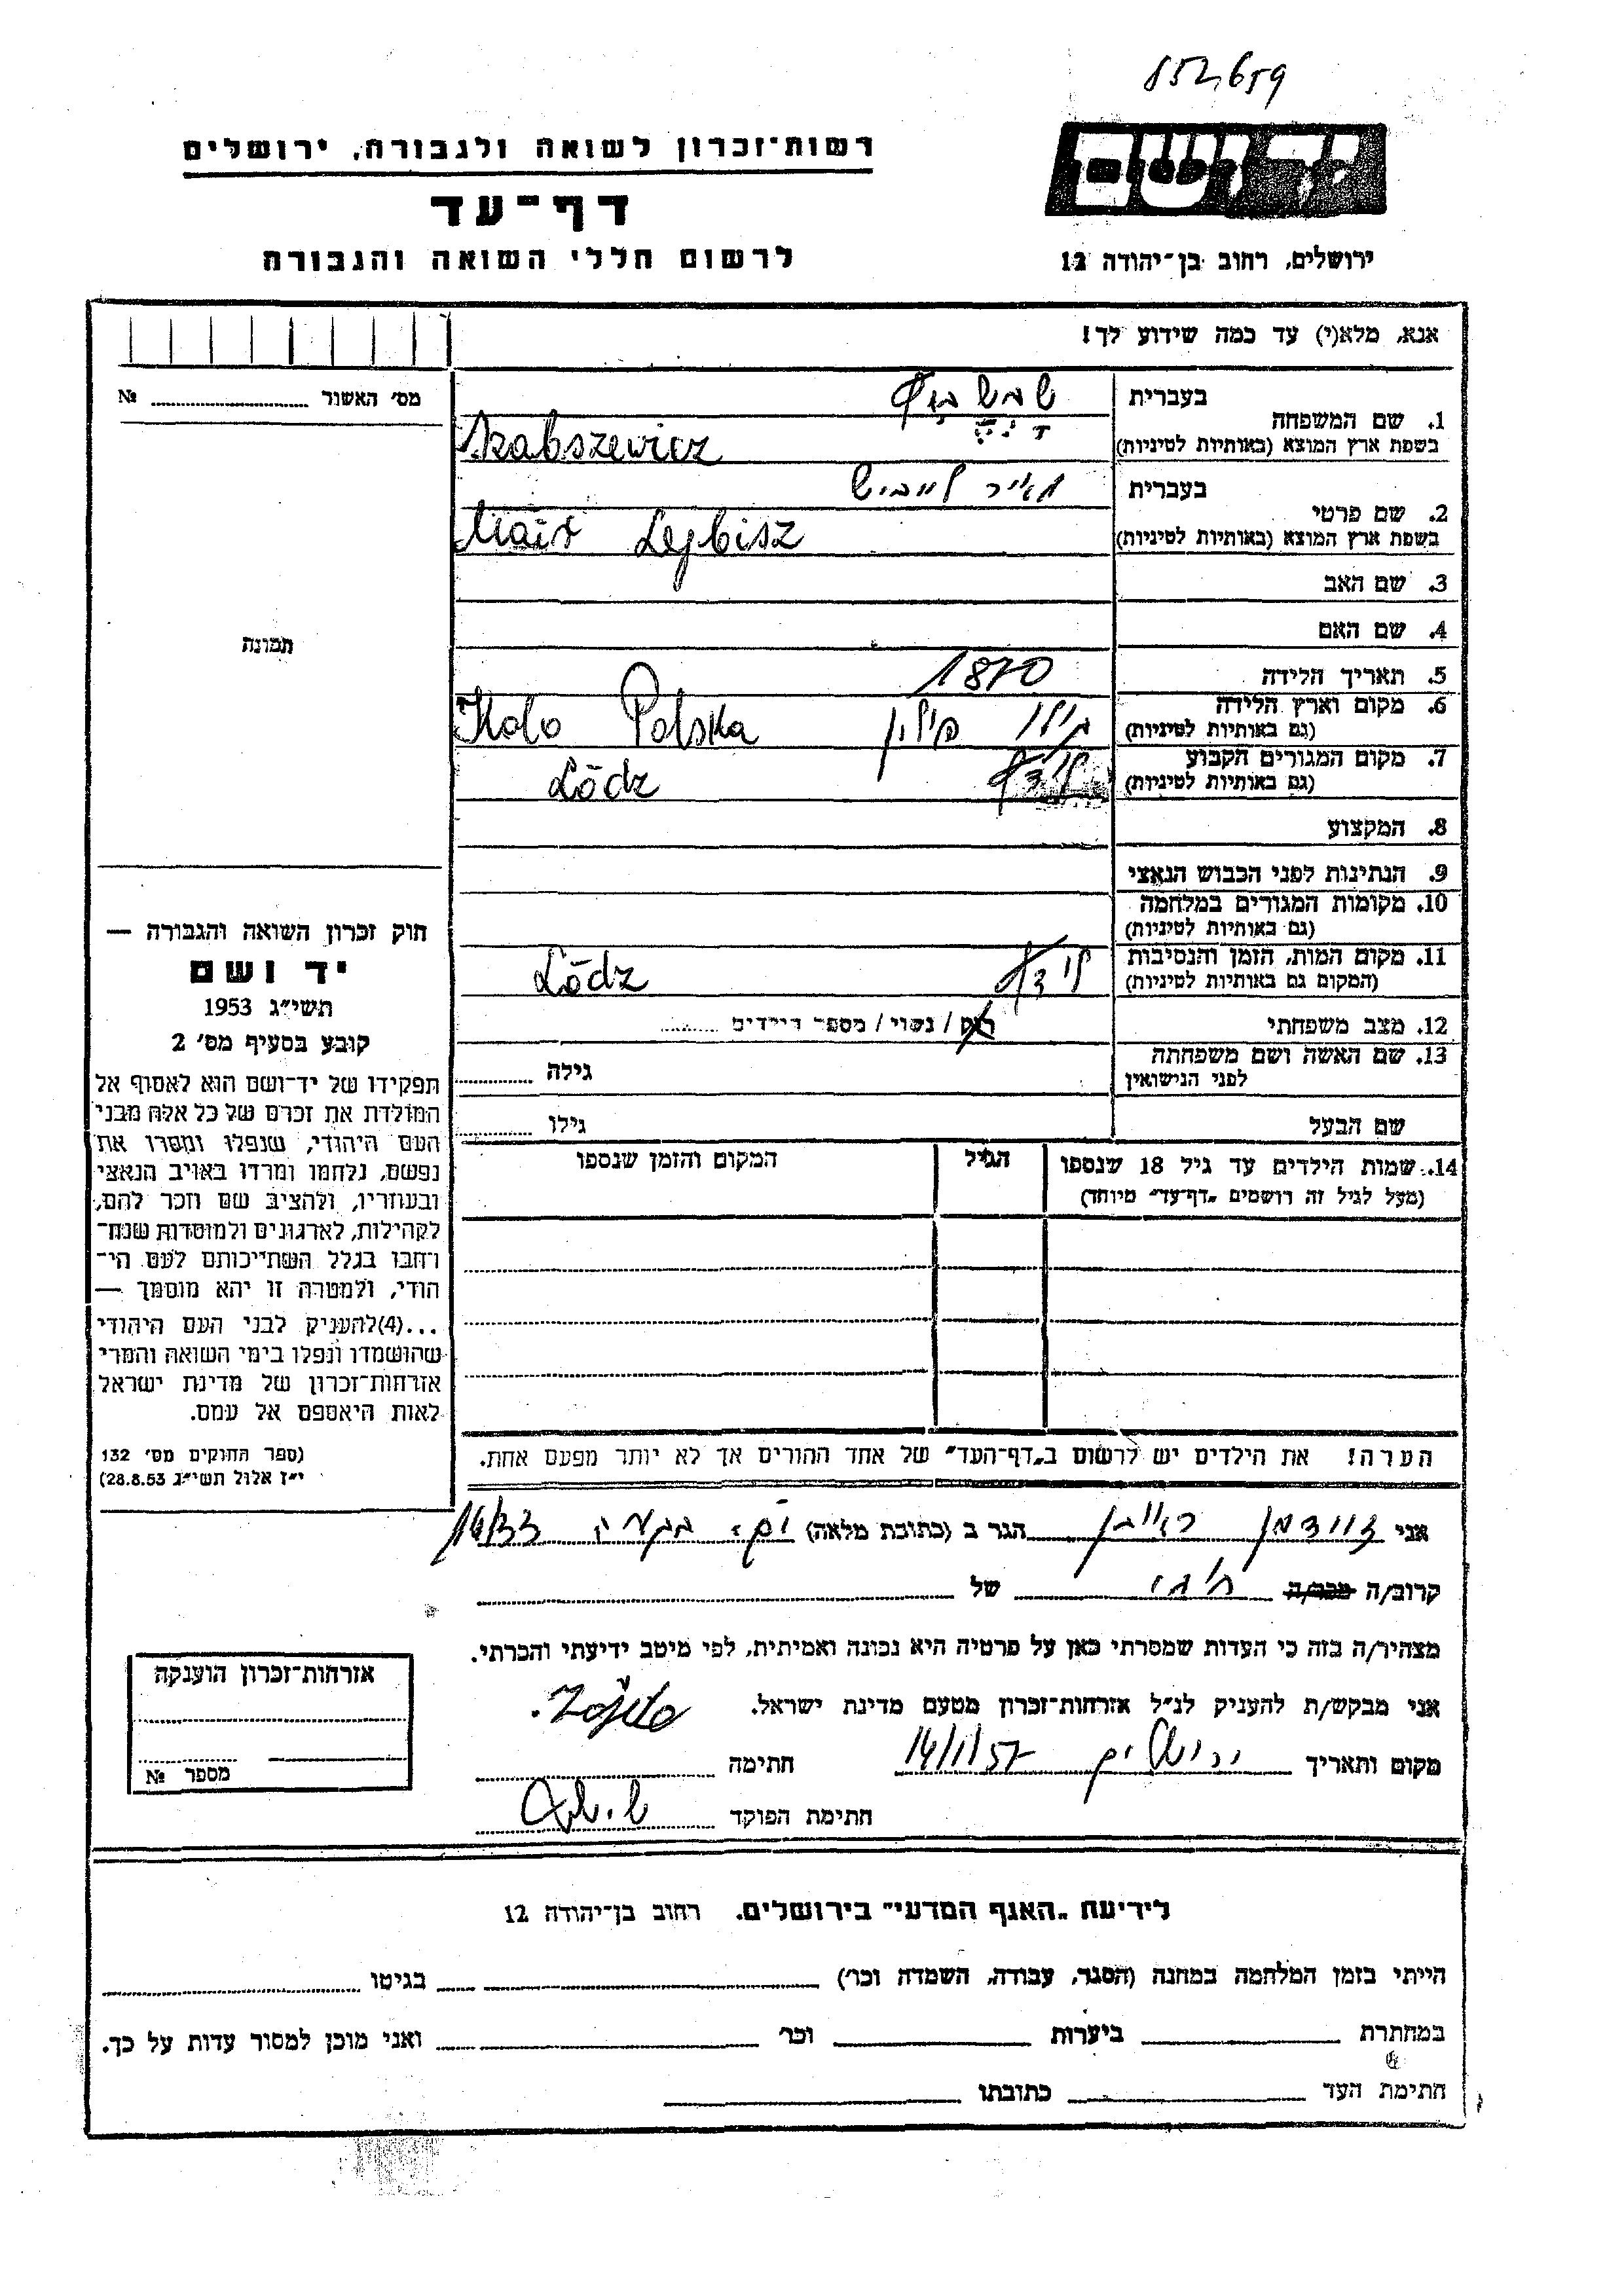 852,659
רשות־זכרון לשואה ולגבורה, ירושלים
יד ושם
דף־עד
לרשום חללי השואה והגבורה
ירושלים, רחוב בן־יהודה 12
אנא, מלא(י) עד כמה שידוע לך!
מס׳ האשור № 
1. שם המשפחה
בעברית
בשפת ארץ המוצא (באותיות לטיניות) Szabszewicz
2. שם פרטי
בעברית מאיר לייביש
בשפת ארץ המוצא (באותיות לטיניות) Mair Lejbisz
3. שם האב
4. שם האם
תמונה
5. תאריך הלידה 1870
6. מקום וארץ הלידה פולין Kolo Polska
(גם באותיות לטיניות)
7. מקום המגורים הקבוע לודז׳ Lódz
(גם באותיות לטיניות)
8. המקצוע
9. הנתינות לפני הכבוש הנאצי
10. מקומות המגורים במלחמה
(גם באותיות לטיניות)
11. מקום המות, הזמן והנסיבות לודז׳ Lódz
(המקום גם באותיות לטיניות)
12. מצב משפחתי רווק / נשוי / מספר הילדים
13. שם האשה ושם משפחתה גילה
לפני הנישואין
שם הבעל גילו
14. שמות הילדים עד גיל 18 שנספו הגיל המקום והזמן שנספו
(מעל לגיל זה רושמים „דף־עד״ מיוחד)
הערה! את הילדים יש לרשום ב„דף־העד״ של אחד ההורים אך לא יותר מפעם אחת.
חוק זכרון השואה והגבורה —
יד ושם
תשי״ג 1953
קובע בסעיף מס׳ 2
תפקידו של יד־ושם הוא לאסוף אל
המולדת את זכרם של כל אלה מבני
העם היהודי, שנפלו ומסרו את
נפשם, נלחמו ומרדו באויב הנאצי
ובעוזריו, ולהציב שם וזכר להם,
לקהילות, לארגונים ולמוסדות שנח־
רחבו בגלל השתייכותם לעם הי־
הודי, ולמטרה זו יהא מוסמך —
...(4)להעניק לבני העם היהודי
שהושמדו ונפלו בימי השואה והמרי
אזרחות־זכרון של מדינת ישראל
לאות היאספם אל עמם.
(ספר החוקים מס׳ 132
י״ז אלול תשי״ג 28.8.53)
אני זיידמן ראובן הגר ב (כתובת מלאה)
קרוב/ה מכר/ה של
מצהיר/ה בזה כי העדות שמסרתי כאן על פרטיה היא נכונה ואמיתית, לפי מיטב ידיעתי והכרתי.
אני מבקש/ת להעניק לנ״ל אזרחות־זכרון מטעם מדינת ישראל.
מקום ותאריך ירושלים 14/1/57 חתימה
חתימת הפוקד
אזרחות־זכרון הוענקה
מספר №
לידיעת „האגף המדעי״ בירושלים. רחוב בן־יהודה 12
הייתי בזמן המלחמה במחנה (הסגר, עבודה, השמדה וכו׳) בגיטו
במחתרת ביערות וכו׳ ואני מוכן למסור עדות על כך.
חתימת העד כתובתו